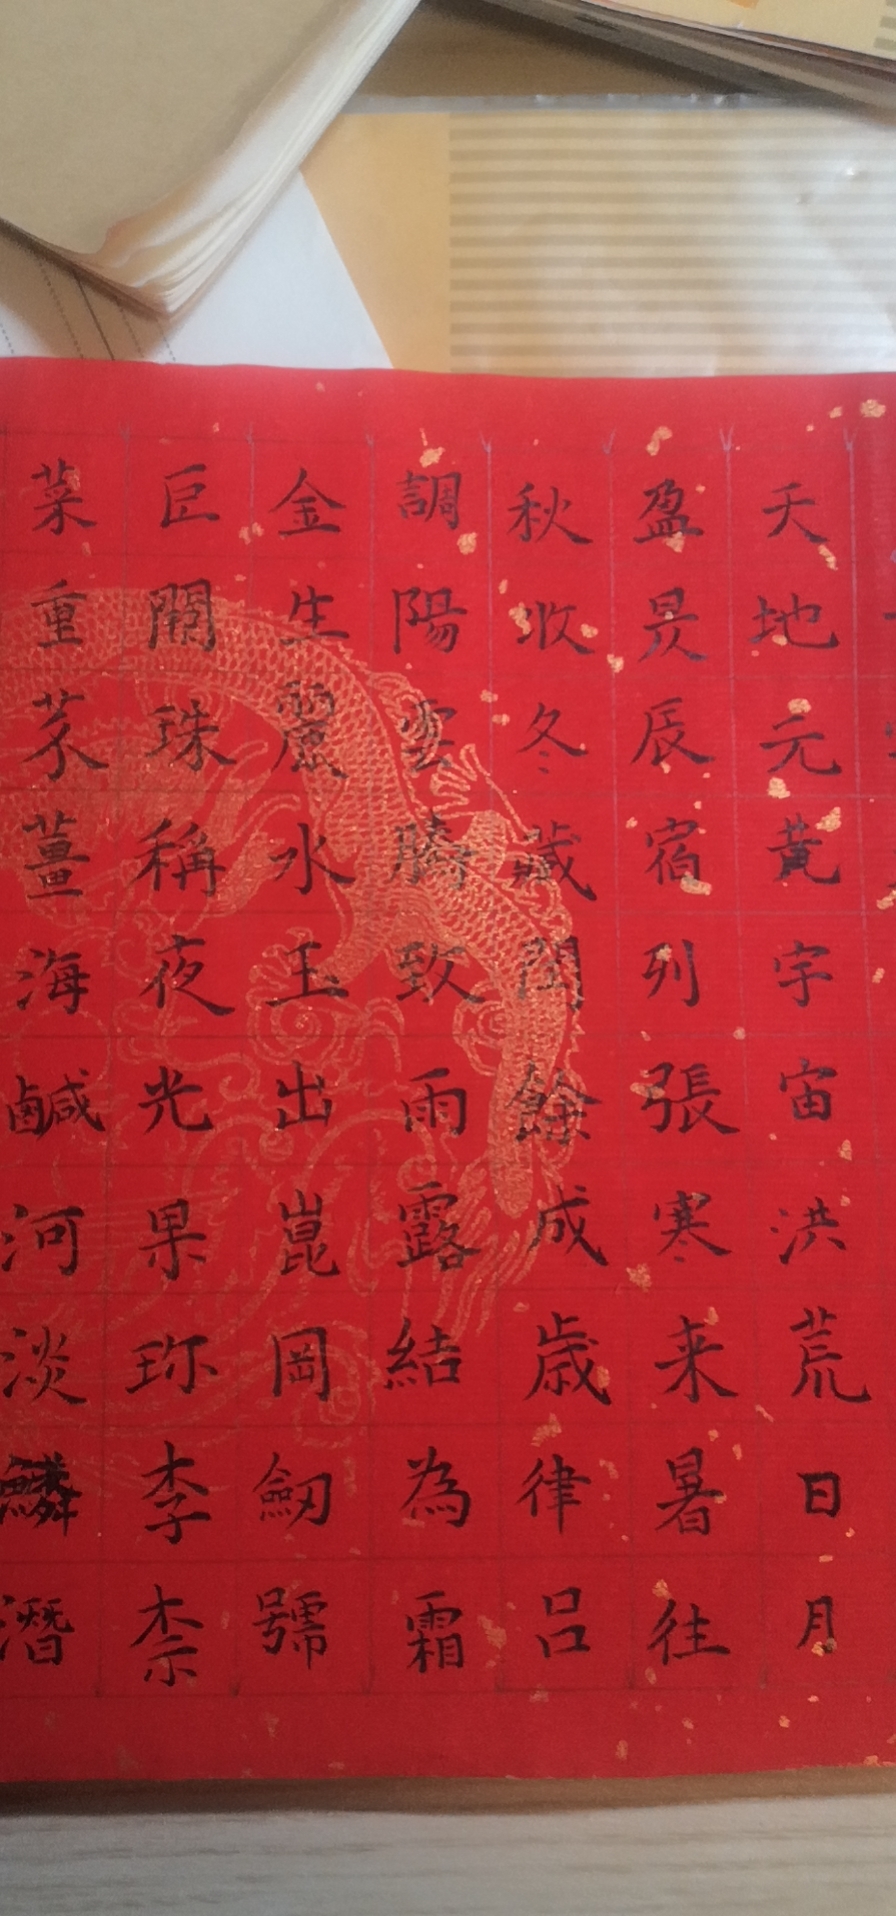 天地元黃宇宙洪荒日月
盈昃辰宿列張寒来暑往
秋收冬藏閏餘成歳律吕
調陽雲騰致雨露結為霜
金生麗水玉出崑岡劒號
巨闕珠稱夜光果珎李柰
菜重芥薑海鹹河淡鱗潛